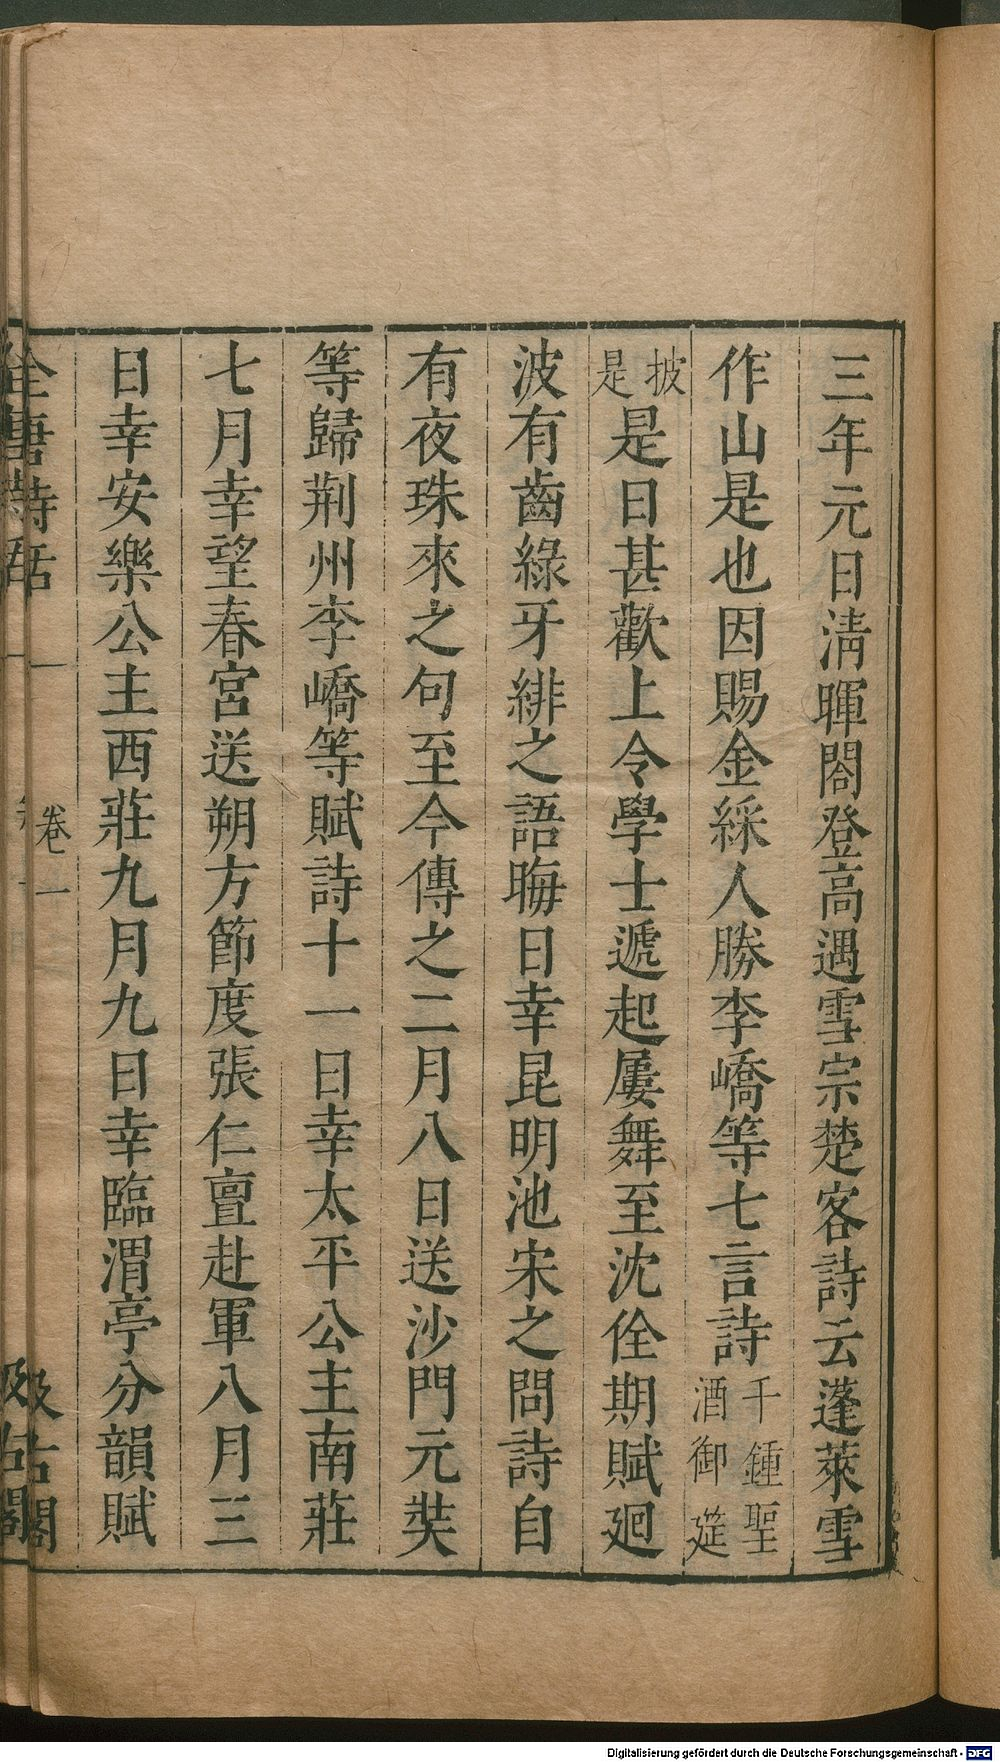 三年元日淸暉閣登高遇雪宗楚客詩云蓬萊雪
作山是也因賜金綵人勝李嶠等七言詩千鍾聖酒御筵
披是是日甚歡上令學士遞起屢舞至沈佺期賦廻
波有齒綠牙緋之語晦日幸昆明池宋之問詩自
有夜珠來之句至今傳之二月八日送沙門元奘
等歸荆州李嶠等賦詩十一日幸太平公主南莊
七月幸望春宮送朔方節度張仁亶赴軍八月三
日幸安樂公主西莊九月九日幸臨渭亭分韻賦
全唐詩話 卷一 汲古閣
Digitalisierung gefördert durch die Deutsche Forschungsgemeinschaft - DFG